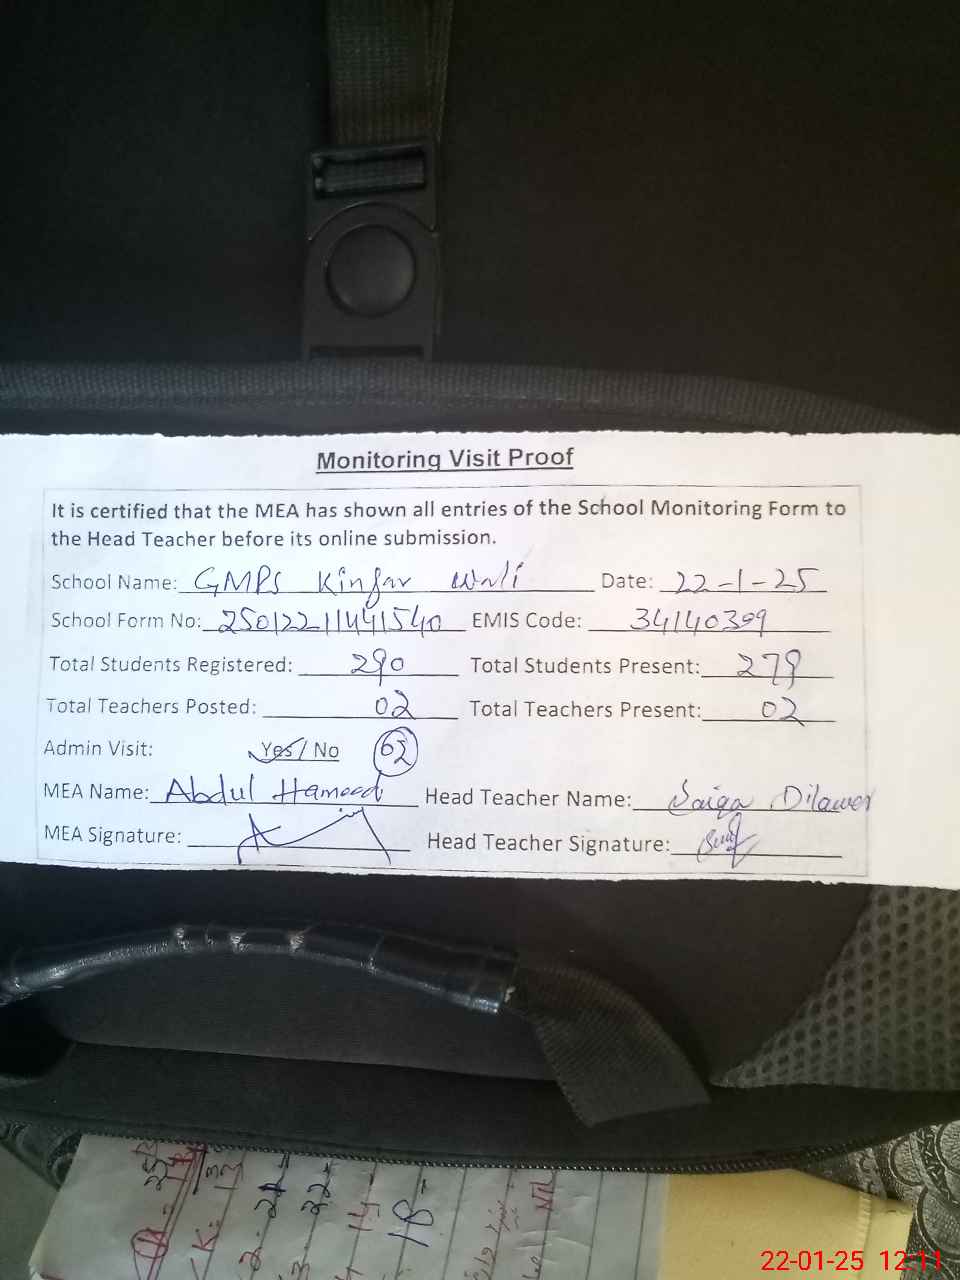 Monitoring Visit Proof
It is certified that the MEA has shown all entries of the School Monitoring Form to
the Head Teacher before its online submission.
School Name: GMPS Kinjar Wali Date: 22-1-25
School Form No: 2501221141540 EMIS Code: 34140399
Total Students Registered: 290 Total Students Present: 279
Total Teachers Posted: 02 Total Teachers Present: 02
Admin Visit: Yes / No
MEA Name: Abdul Hameed Head Teacher Name: Saiqa Dilawer
MEA Signature: Head Teacher Signature:
K: 13
22-01-25 12:11